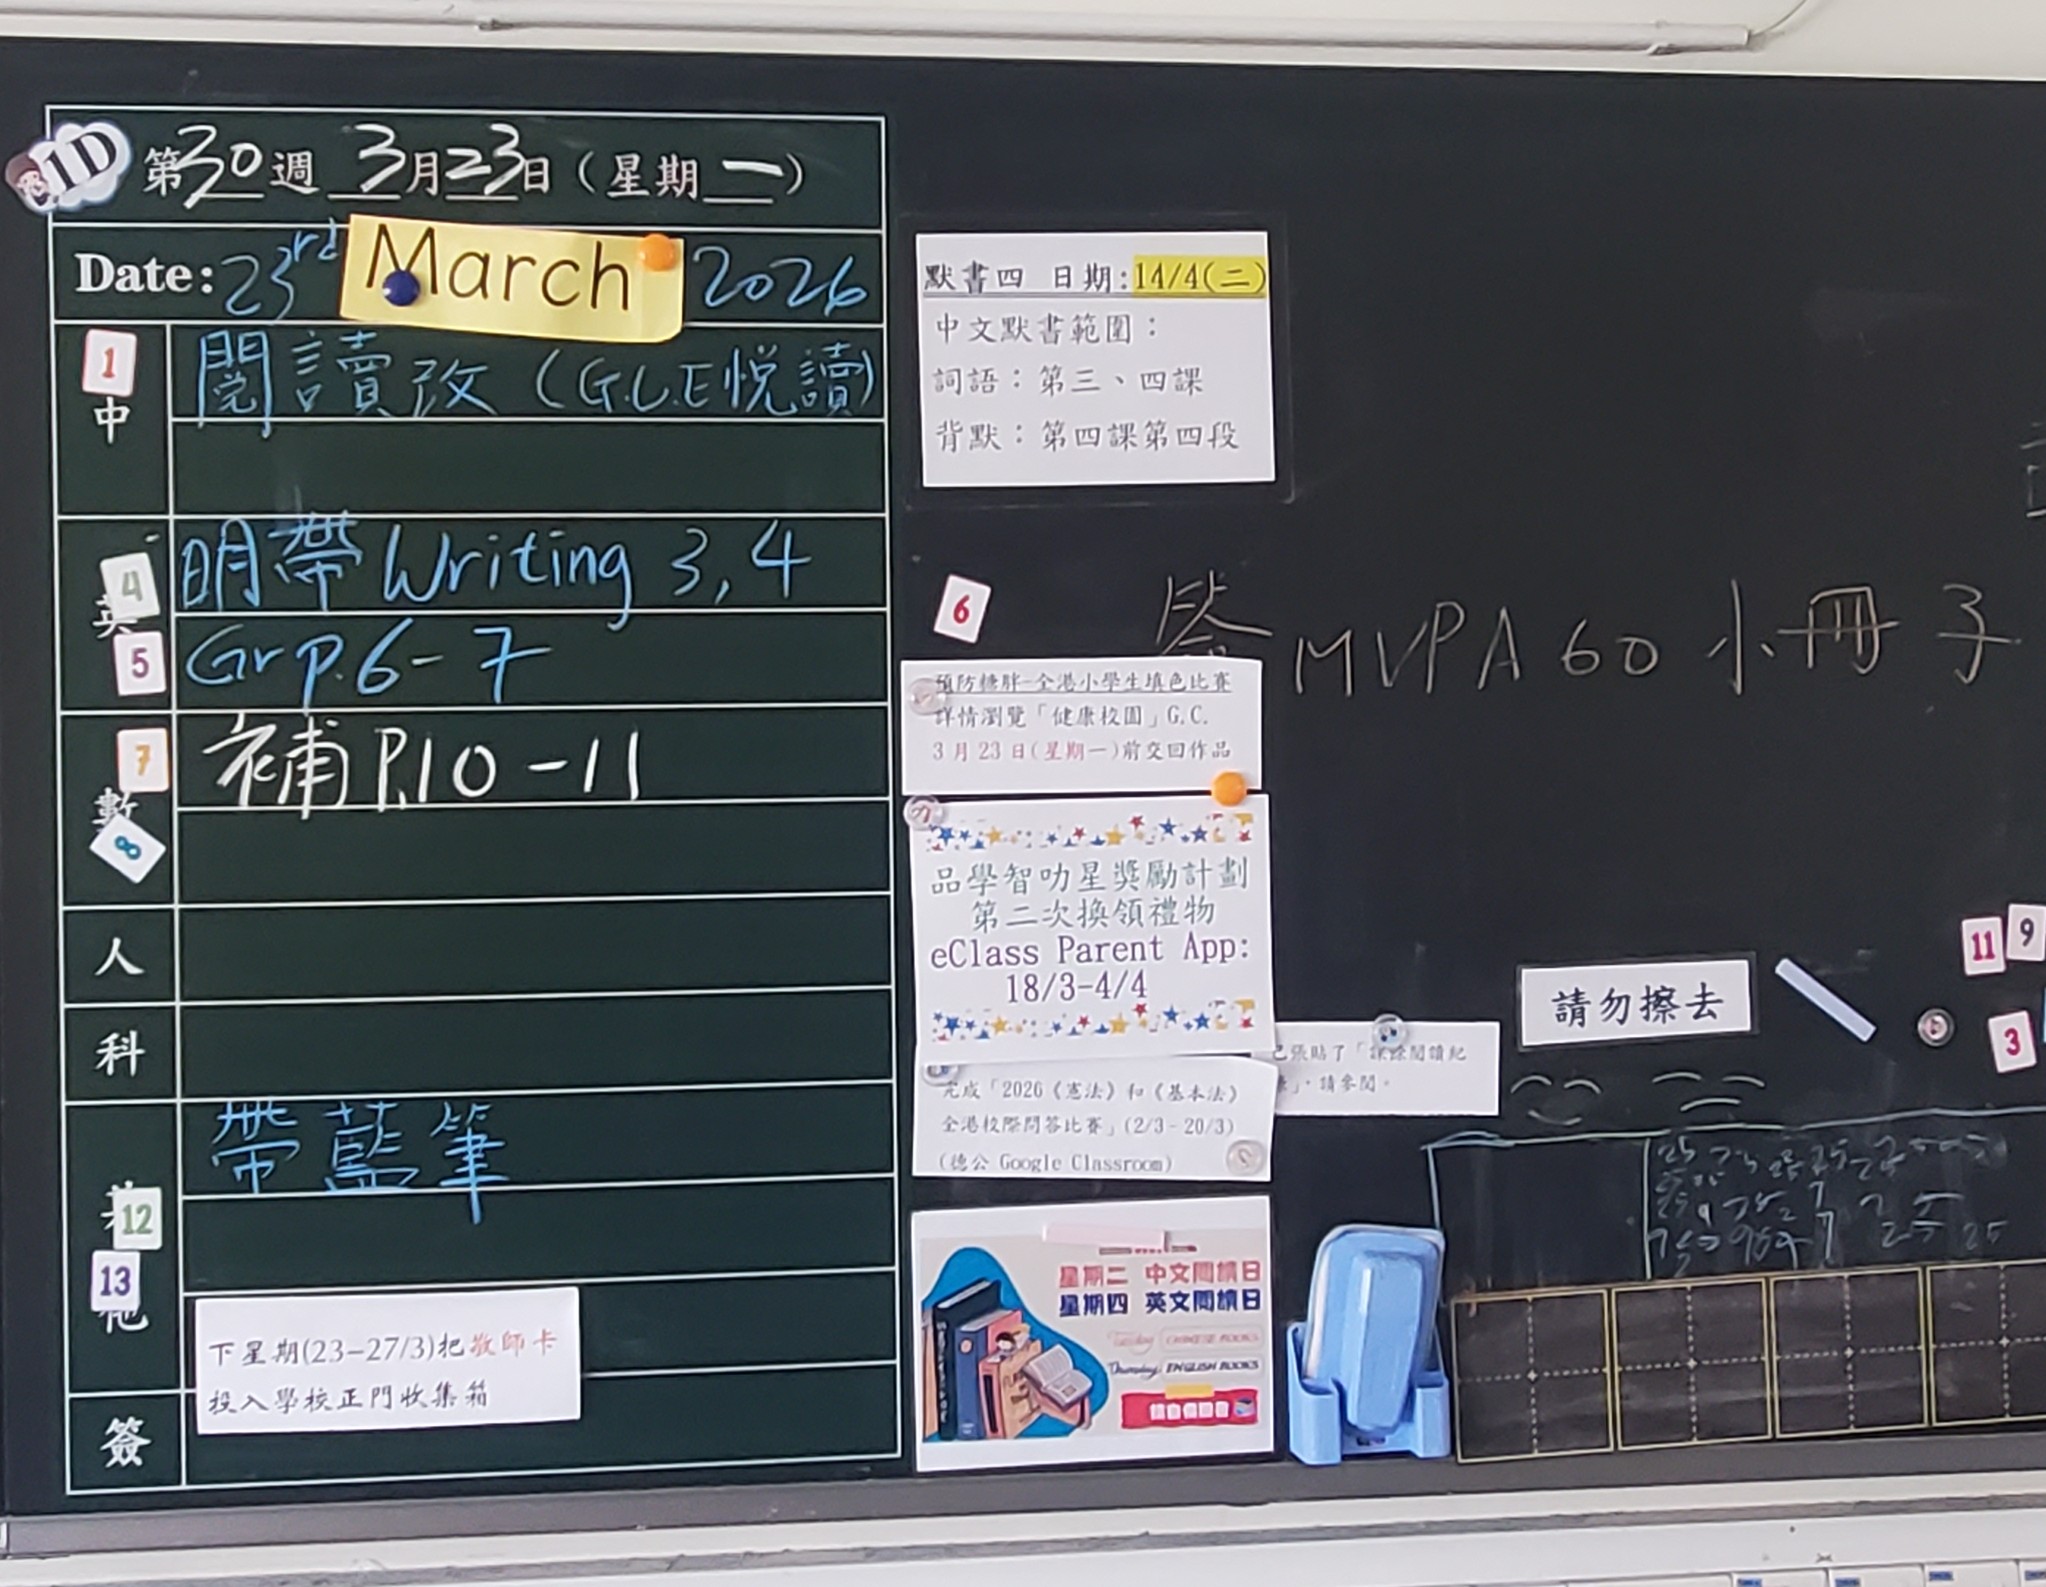 1D
第30週 3月23日(星期一)
Date: 23rd March 2026
1
中
閱讀改(G.L.E悅讀)
4
英
明帶Writing 3, 4
5
Gr p.6-7
7
數
補P.10-11
8
人
科
帶藍筆
12
13
他
下星期(23-27/3)把敬師卡
投入學校正門收集箱
簽
默書四 日期:14/4(二)
中文默書範圍:
詞語:第三、四課
背默:第四課第四段
6
MVPA60小冊子
預防糖胖-全港小學生填色比賽
詳情瀏覽「健康校園」G.C.
3月23日(星期一)前交回作品
品學智叻星獎勵計劃
第二次換領禮物
eClass Parent App:
18/3-4/4
完成「2026《憲法》和《基本法》
全港校際問答比賽」(2/3-20/3)
(德公 Google Classroom)
已張貼了「課餘閱讀紀
」,請參閱。
星期二 中文閱讀日
星期四 英文閱讀日
Tuesday CHINESE BOOKS
Thursday ENGLISH BOOKS
請勿擦去
11
9
3